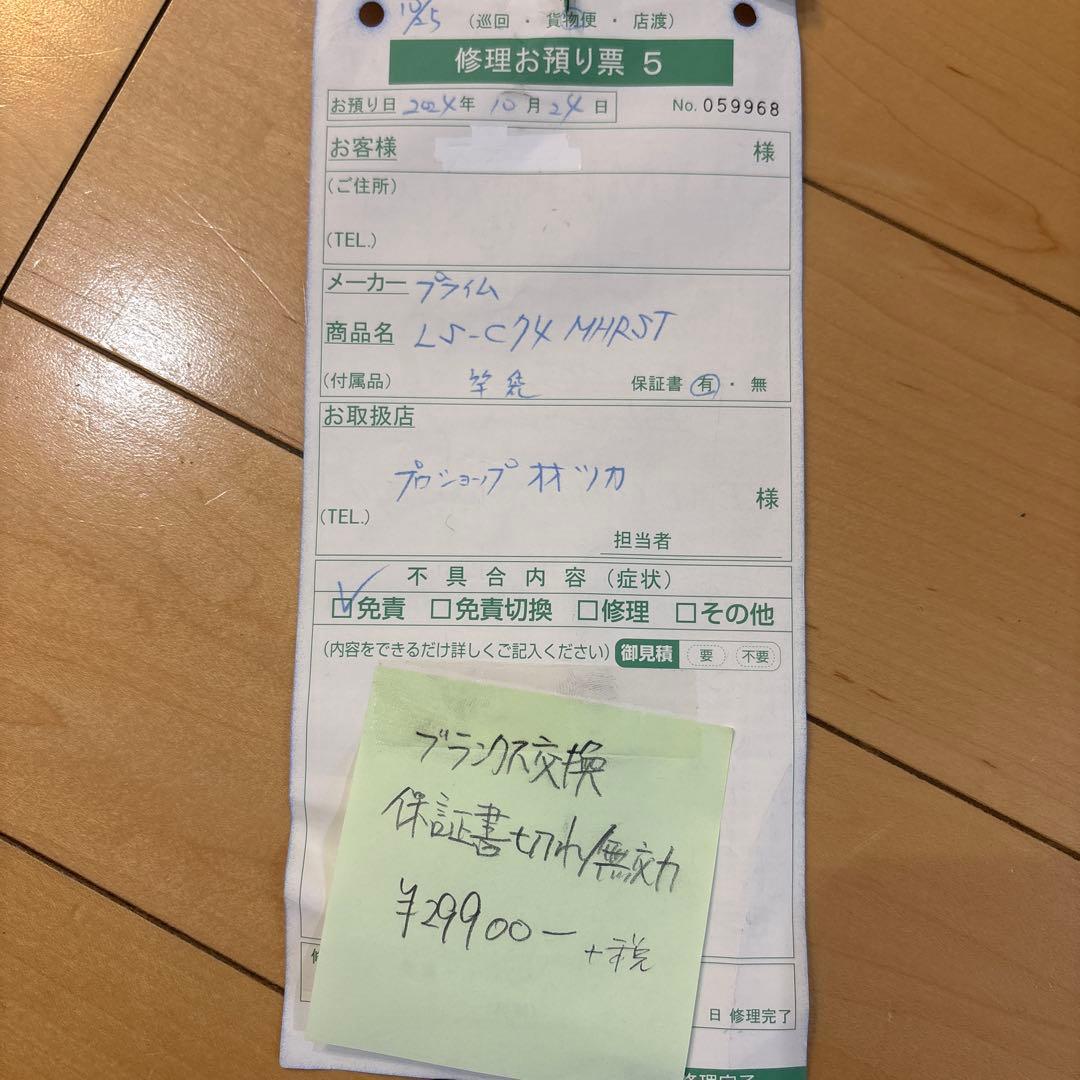 10/25
(巡回 ・ 貨物便 ・ 店渡)
修理お預り票 5
お預り日 2024年 10月 24日
No. 059968
お客様 様
(ご住所)
(TEL.)
メーカー プライム
商品名 LS-C74 MHRST
(付属品) 保証書 有 ・ 無
お取扱店
プロショップ オオツカ
様
(TEL.)
担当者
不具合内容(症状)
☑免責 □免責切換 □修理 □その他
(内容をできるだけ詳しくご記入ください) 御見積 要 不要
ブランクス交換
保証書切れ/無効力
¥29900ー
+税
日 修理完了
修理完了